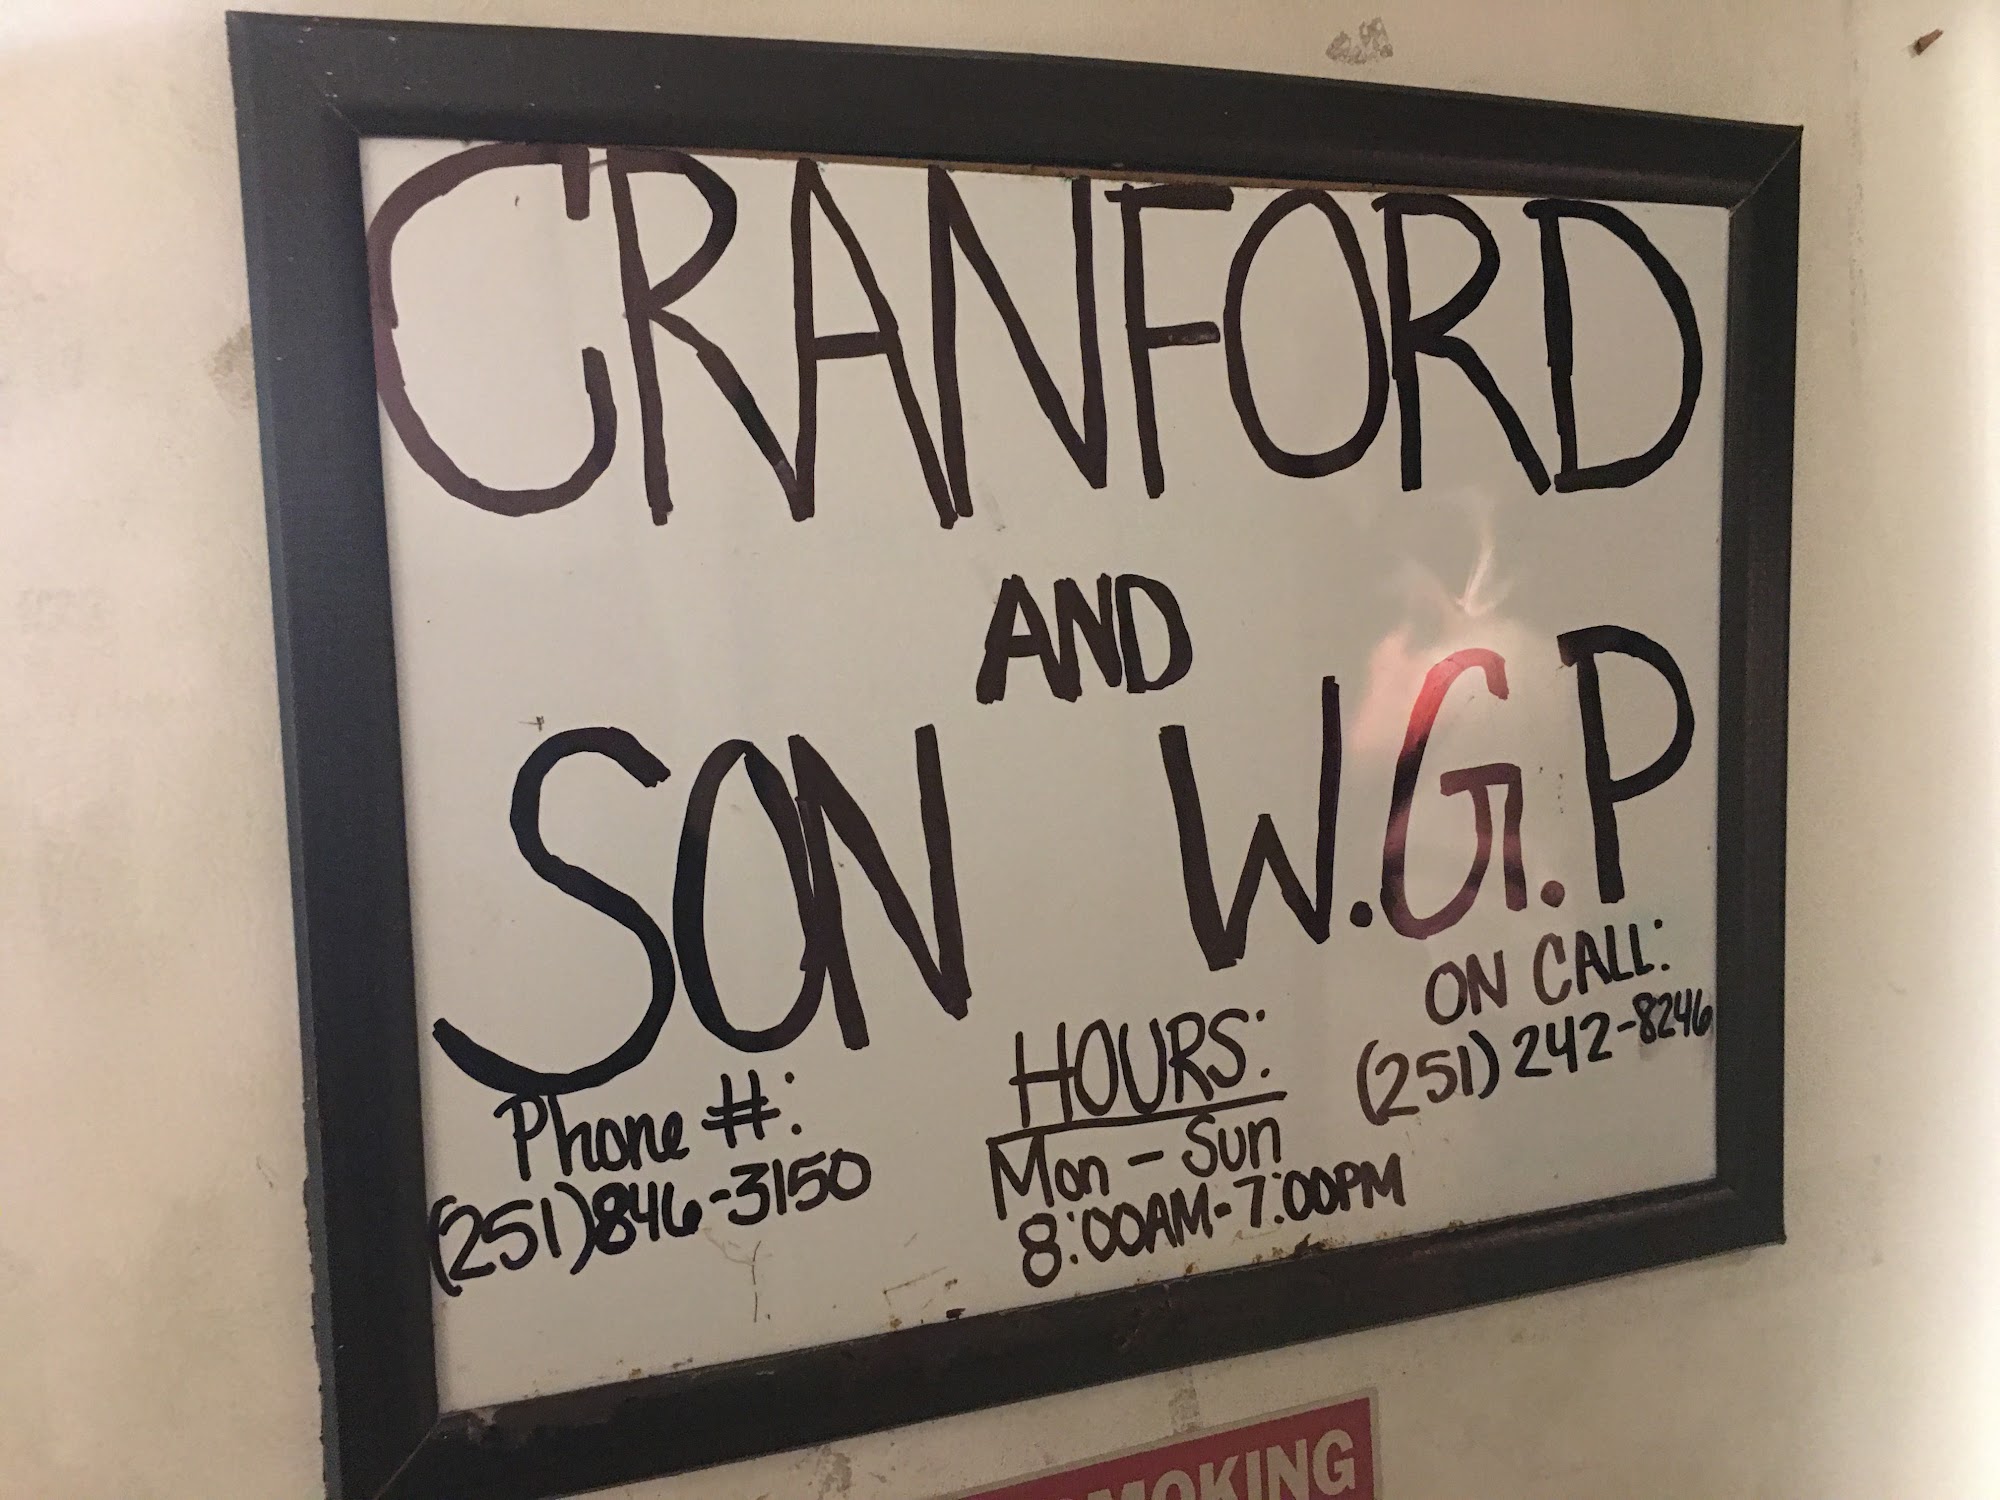 CRANFORD
AND
SON W.G.P
Phone #:
(251)846-3150
HOURS:
Mon - Sun
8:00AM-7:00PM
ON CALL:
(251) 242-8246
SMOKING